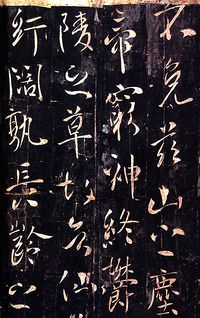 不免兹山之塵
帝窮神終鬱
陵之草故知仙
紆闊孰長齡之